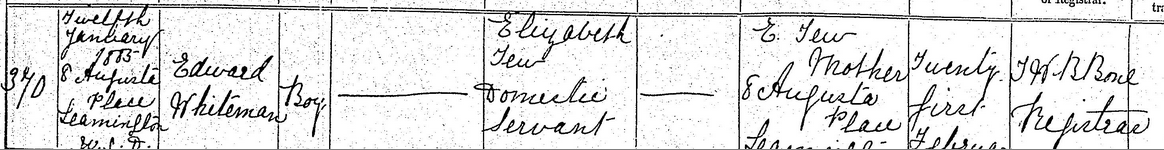 of Registrar.
370
Twelfth
January
1885
8 Augusta
Place
Leamington
U.S.D.
Edward
Whiteman
Boy
Elizabeth
Tew
Domestic
Servant
E. Tew
Mother
8 Augusta
Place
Twenty
first
J W B Bone
Registrar